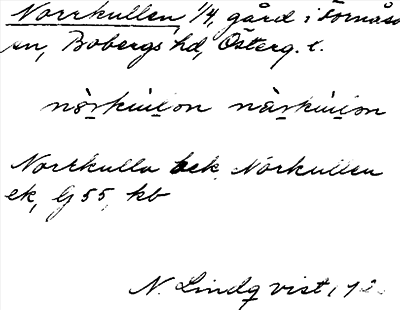 Norrkullen, 1/4, gård i Fornåsa
sn, Bobergs hd, Österg. l.
Norrkulla bek, Norkullen
ek, G 55, kb
N. Lindqvist, 192